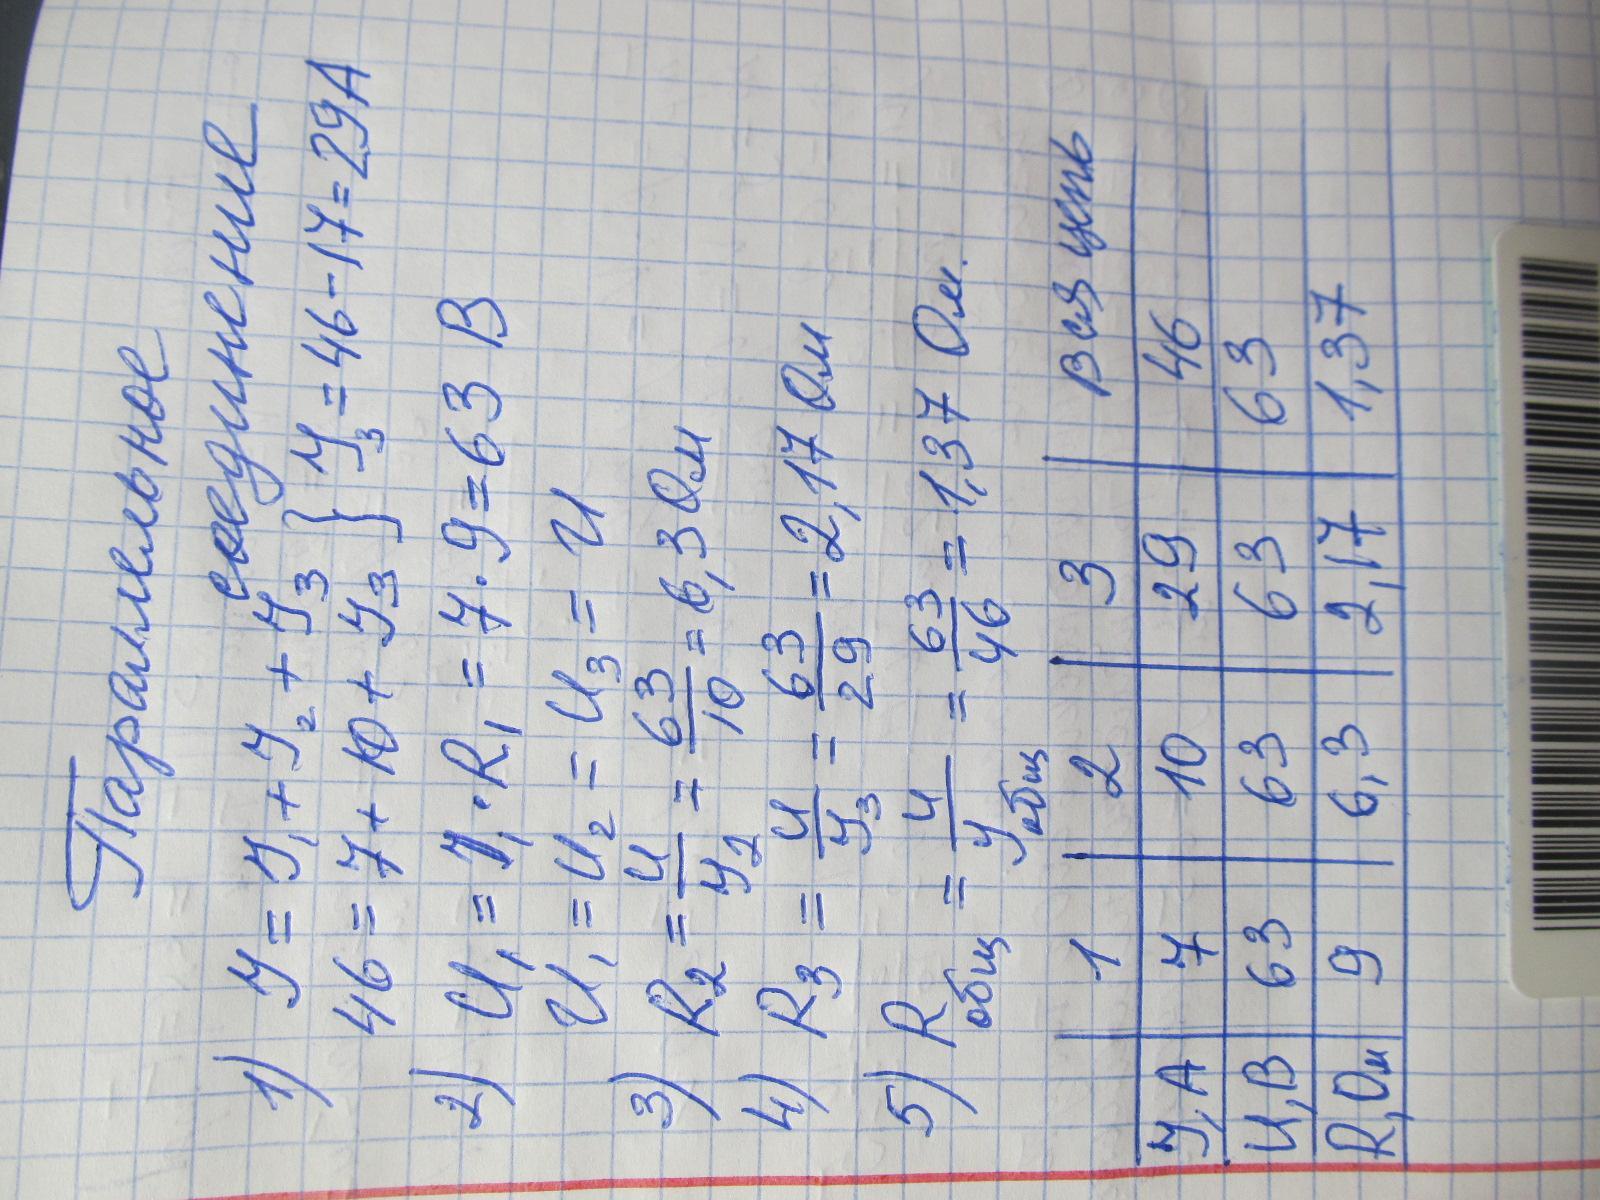 Параллельное
соединение
1) У = У₁ + У₂ + У₃ } У₃ = 46 - 17 = 29А
46 = 7 + 10 + У₃
2) U₁ = У₁ · R₁ = 7 · 9 = 63 В
U₁ = U₂ = U₃ = U
3) R₂ = U/У₂ = 63/10 = 6,3 Ом
4) R₃ = U/У₃ = 63/29 = 2,17 Ом
5) R общ = U/У общ = 63/46 = 1,37 Ом.
1 2 3 Вся цепь
У, А 7 10 29 46
U, В 63 63 63 63
R, Ом 9 6,3 2,17 1,37